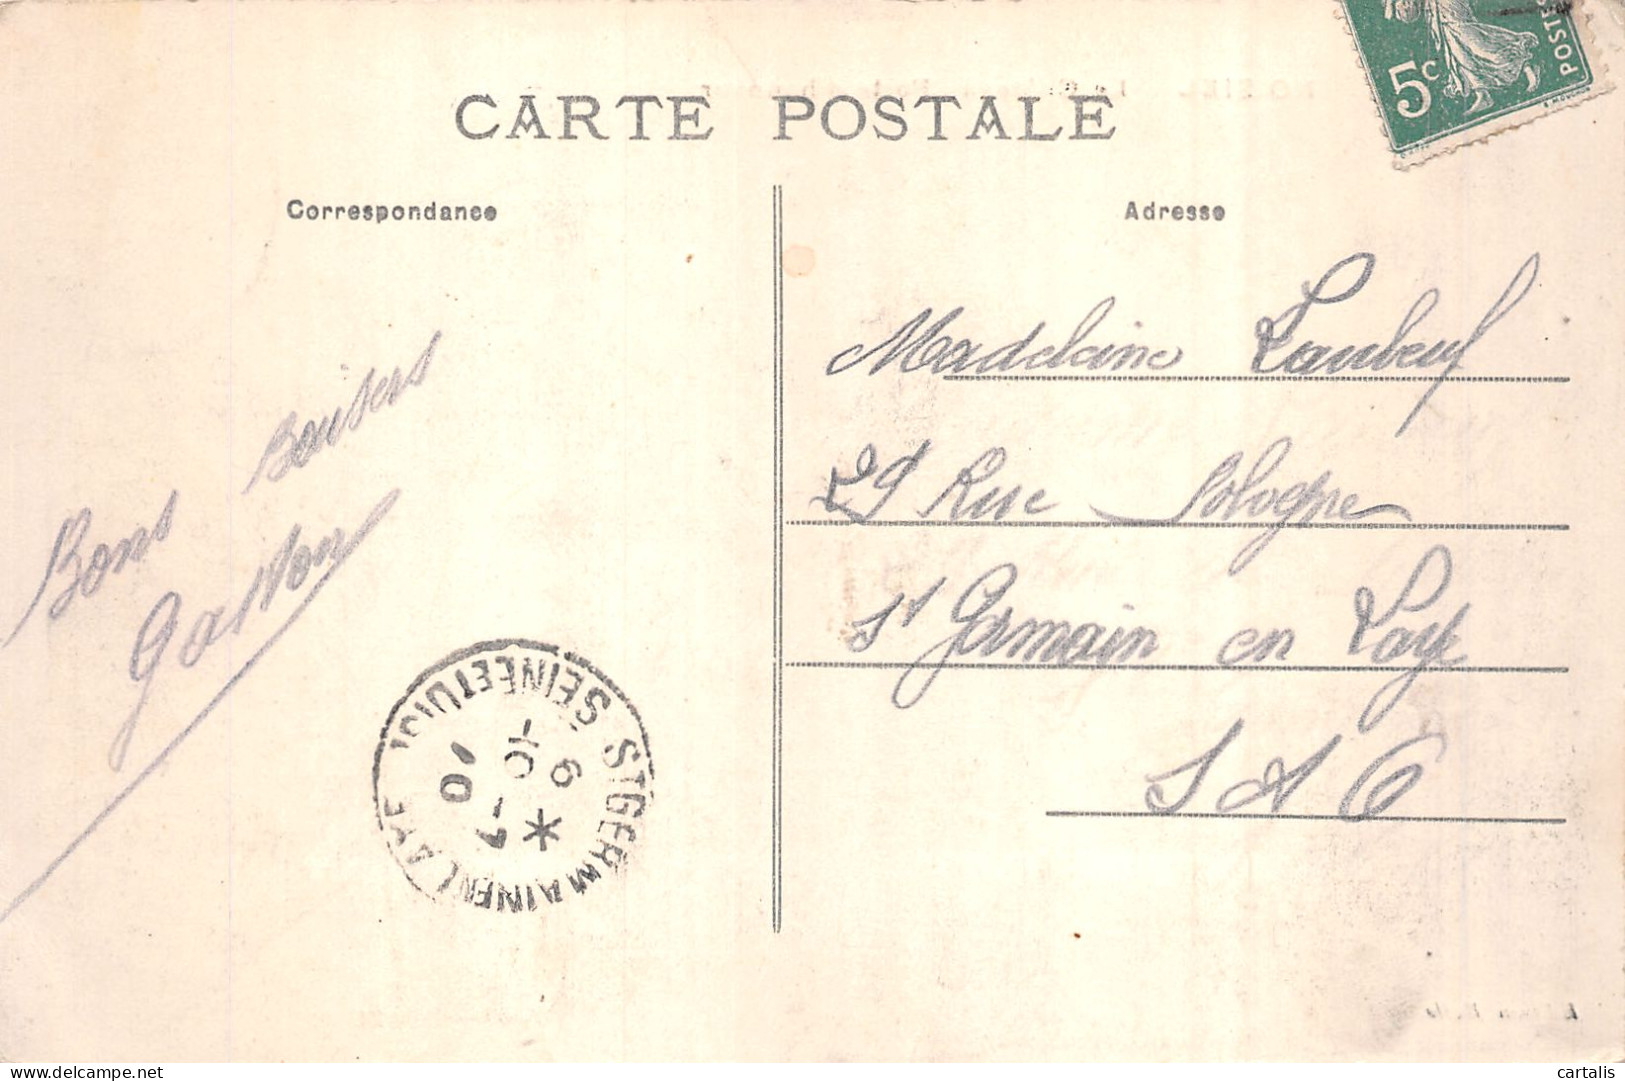 CARTE POSTALE
Correspondance
Adresse
5c
POSTE
Bons Baisers
Gaston
Madeleine Laubeuf
29 Rue Pologne
St Germain en Laye
S et O
ST GERMAIN EN LAYE
SEINE ET OISE
6 - 10
10
delcampe.net
cartalis